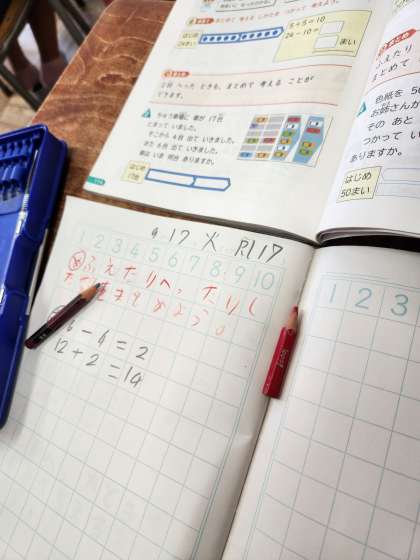 5+5=10
24-10=
まい
はじめ
24まい
まとめ
2回 へった ときも、まとめて 考える ことが
できます。
ちゅう車場に 車が 17台
とまって いました。
そこから 4台 出て いきました。
また 6台 出て いきました。
車は いま 何台 ありますか。
はじめ
17台
まとめ
ふえたり
まとめて
色紙を 50
お姉さんか
その あと
つかって い
ありますか。
はじめ
50まい
9.17 火 P.117
1 2 3 4 5 6 7 8 9 10
め ふえたりへったりし
6-4=2
12+2=14
1 2 3